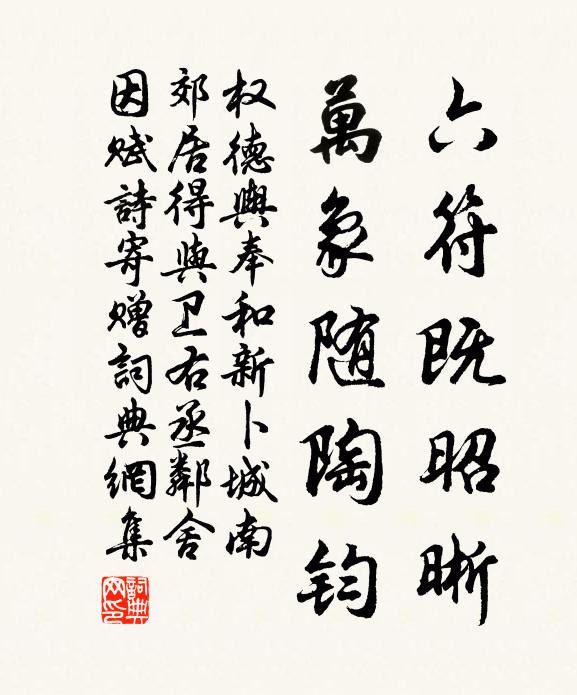 六符既昭晰
萬象随陶钧
权德輿奉和新卜城南
郊居得與卫右丞鄰舍
因赋詩寄贈詞典網集
詞典网印